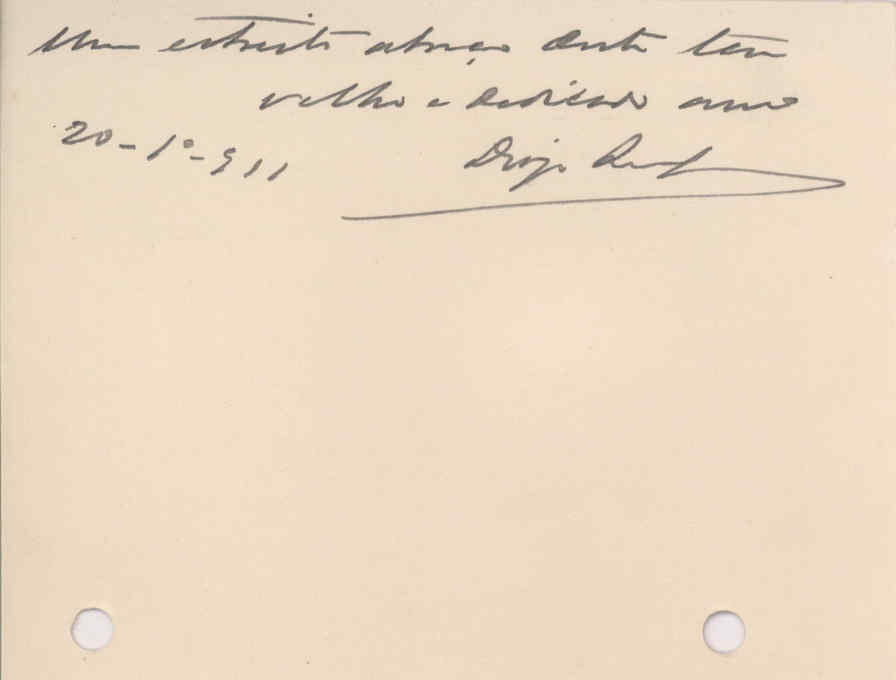 Um estreito abraço deste tão
velho e dedicado amº
20-1º-911